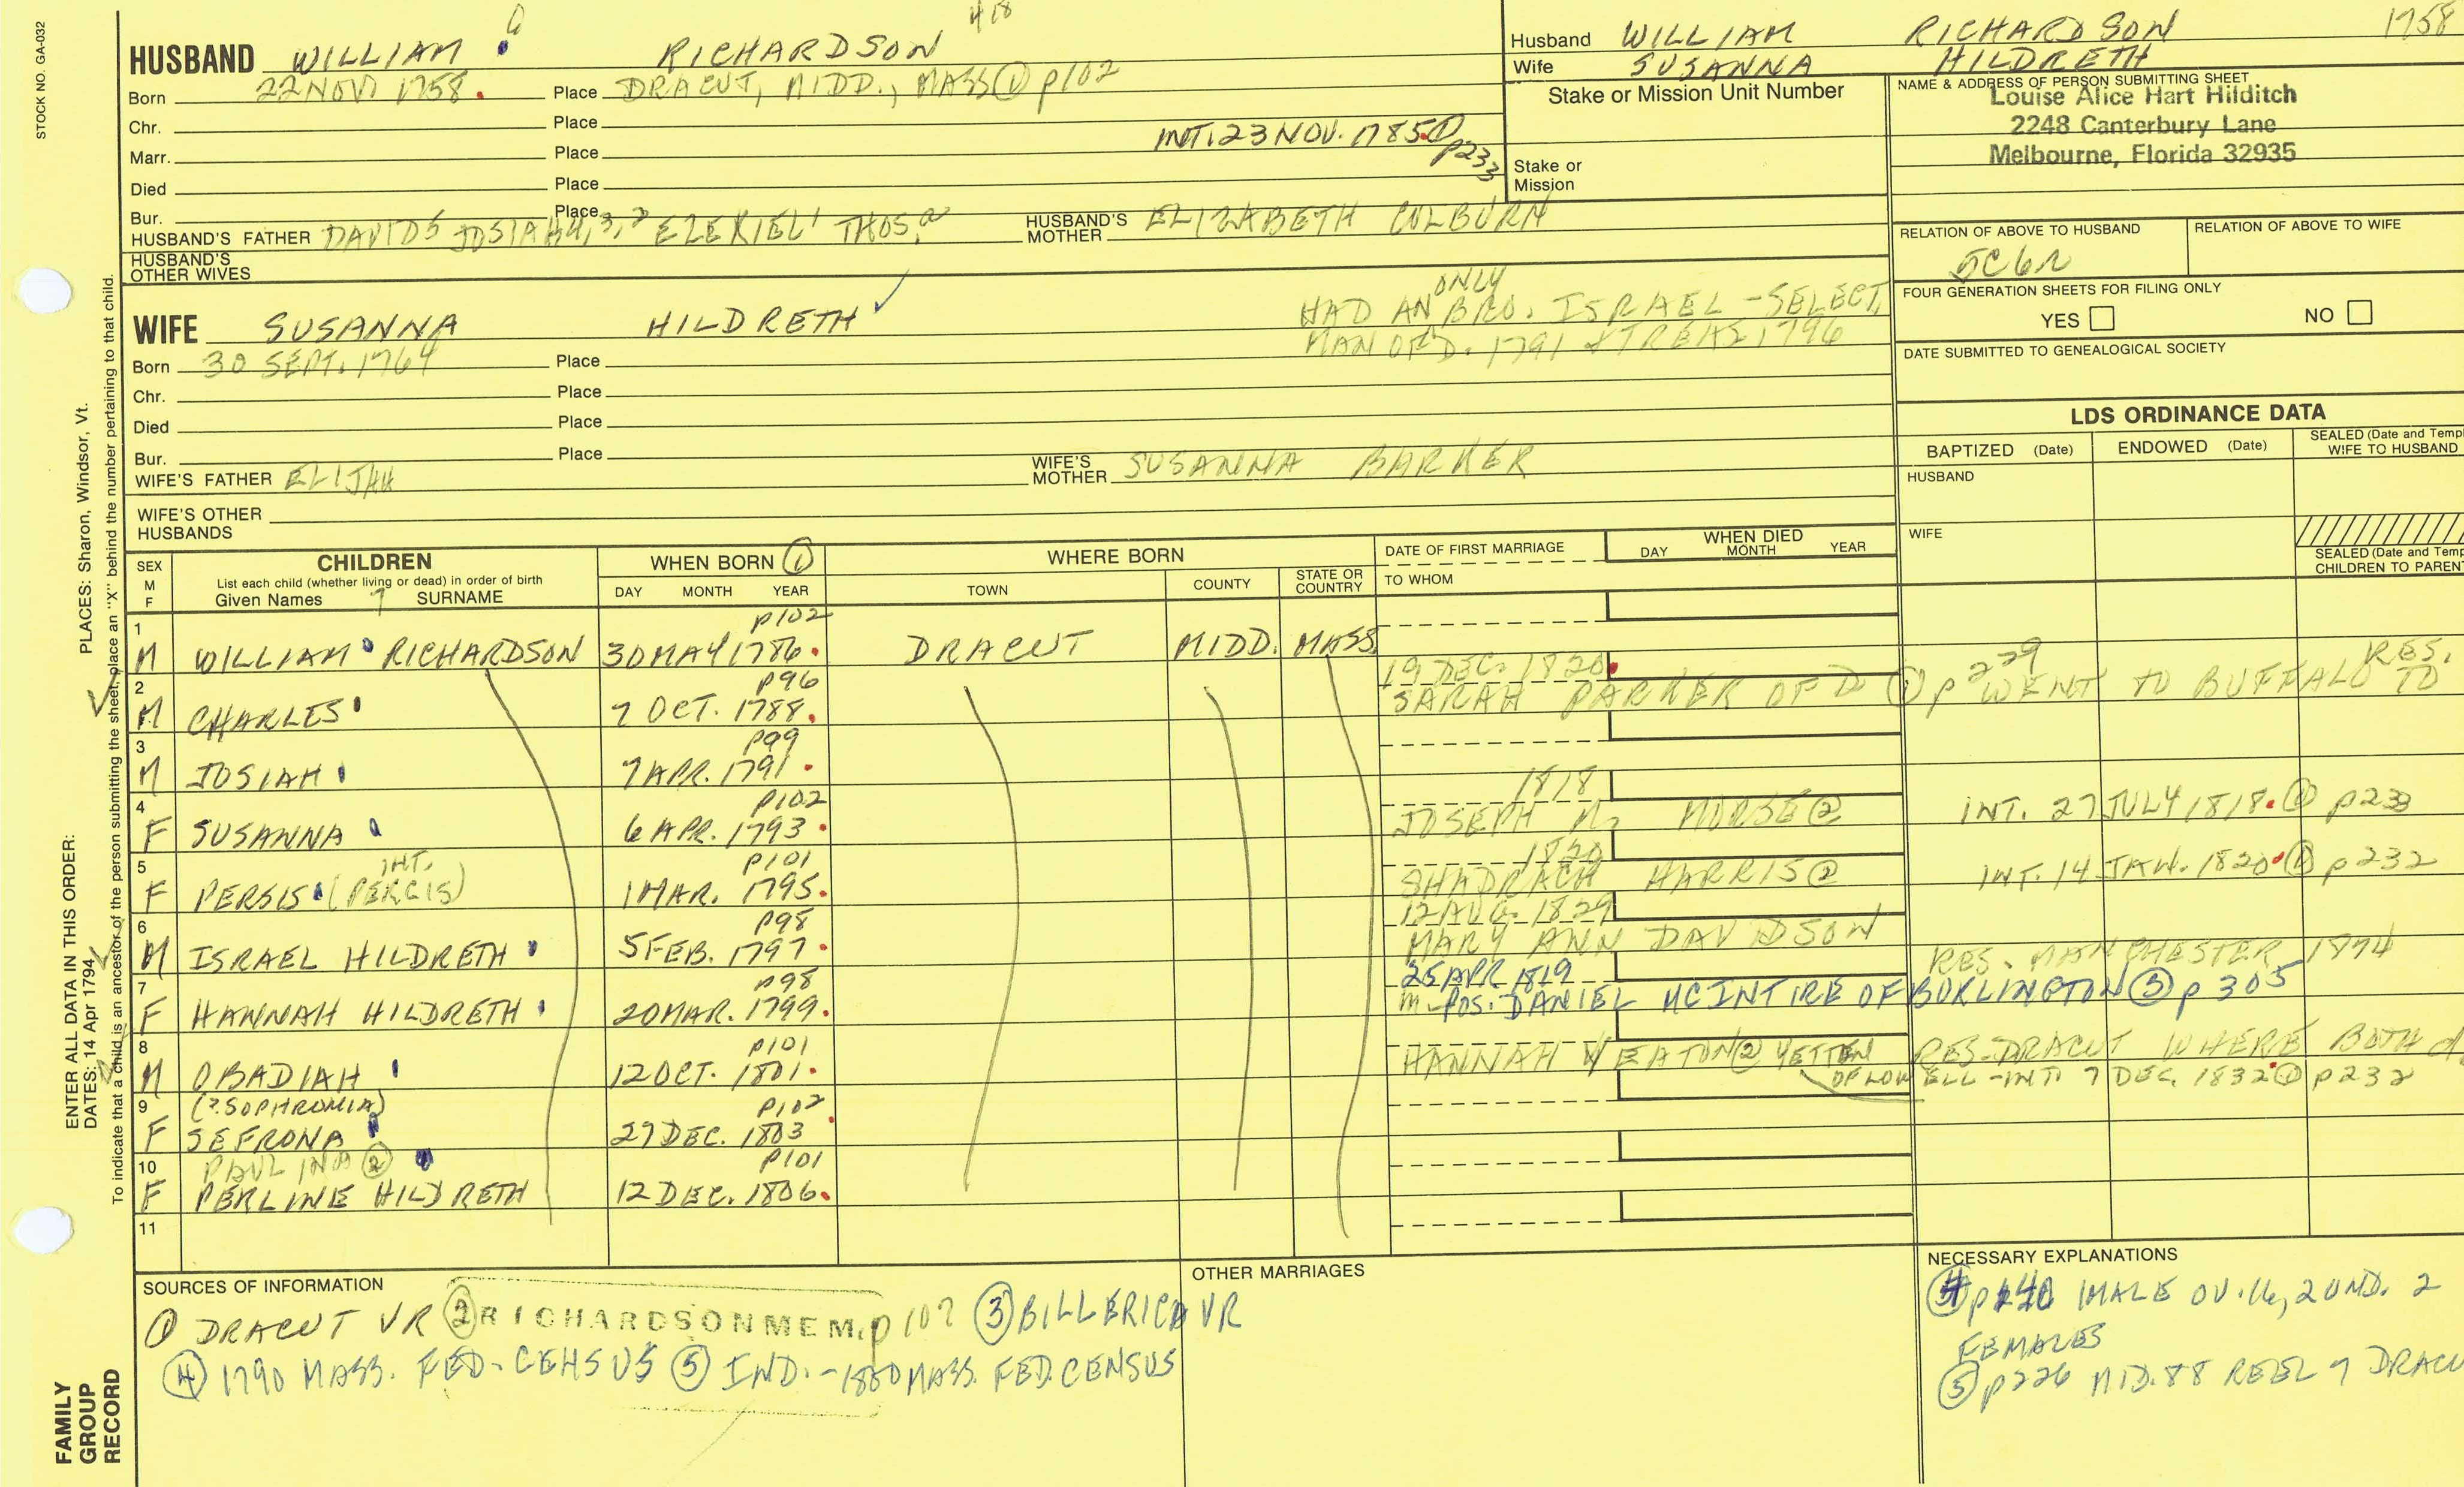 STOCK NO. GA-032
HUSBAND WILLIAM 6 RICHARDSON
Born 22 NOV 1758. Place DRACUT, MIDD., MASS ① p102
Chr. Place
Marr. Place INT. 23 NOV. 1785 ① p233
Died Place
Bur. Place
HUSBAND'S FATHER DAVID5 JOSIAH4,3,2 EZEKIEL1 THOS.a HUSBAND'S MOTHER ELIZABETH COLBURN
HUSBAND'S OTHER WIVES
WIFE SUSANNA HILDRETH ✓
HAD AN ONLY BRO. ISRAEL - SELECT,
MAN OF D. 1791 & TREAS 1796
Born 30 SEPT. 1764 Place
Chr. Place
Died Place
Bur. Place
WIFE'S FATHER ELIJAH WIFE'S MOTHER SUSANNA BARKER
WIFE'S OTHER HUSBANDS
Husband WILLIAM RICHARDSON 1758
Wife SUSANNA HILDRETH
Stake or Mission Unit Number
Stake or Mission
NAME & ADDRESS OF PERSON SUBMITTING SHEET
Louise Alice Hart Hilditch
2248 Canterbury Lane
Melbourne, Florida 32935
RELATION OF ABOVE TO HUSBAND RELATION OF ABOVE TO WIFE
5C6R
FOUR GENERATION SHEETS FOR FILING ONLY
YES NO
DATE SUBMITTED TO GENEALOGICAL SOCIETY
LDS ORDINANCE DATA
BAPTIZED (Date) ENDOWED (Date) SEALED (Date and Templ
WIFE TO HUSBAND
HUSBAND
WIFE
SEALED (Date and Temp
CHILDREN TO PAREN
SEX M F CHILDREN WHEN BORN ① WHERE BORN DATE OF FIRST MARRIAGE WHEN DIED
List each child (whether living or dead) in order of birth
Given Names 7 SURNAME DAY MONTH YEAR TOWN COUNTY STATE OR COUNTRY TO WHOM DAY MONTH YEAR
1 p102
M WILLIAM RICHARDSON 30 MAY 1786. DRACUT MIDD. MASS.
2 p96 19 DEC. 1820.
M CHARLES 7 OCT. 1788. SARAH PARKER OF D ① p229 WENT TO BUFFALO RES. TO
3 p99
M JOSIAH 7 APR. 1791.
4 p102 1818
F SUSANNA 6 APR. 1793. JOSEPH M. MORSE ② INT. 27 JULY 1818. ① p233
5 INT. p101 1820
F PERSIS (PERCIS) 1 MAR. 1795. SHADRACH HARRIS ② INT. 14 JAN. 1820. ① p232
6 p98 12 AUG. 1829
M ISRAEL HILDRETH 5 FEB. 1797. MARY ANN DAVIDSON RES. MANCHESTER 1874
7 p98 25 APR 1819
F HANNAH HILDRETH 20 MAR. 1799. m. POS. DANIEL MCINTIRE OF BURLINGTON ③ p 305
8 p101
M OBADIAH 12 OCT. 1801. HANNAH W EATON ② YETTEN RES. DRACUT WHERE BOTH d.
OF LOWELL - INT. 7 DEC. 1832. ① p232
9 (?SOPHRONIA) p102
F SEFRONA 27 DEC. 1803.
10 PAULINA ② p101
F PERLINE HILDRETH 12 DEC. 1806.
11
SOURCES OF INFORMATION
① DRACUT VR ② RICHARDSON MEM. p107 ③ BILLERICA VR
④ 1790 MASS. FED. CENSUS ⑤ IND. - 1800 MASS. FED. CENSUS
OTHER MARRIAGES
NECESSARY EXPLANATIONS
④ p140 1 MALE OV. 16, 2 UND. 2
FEMALES
⑤ p226 MID. 88 REEL 7 DRACU
PLACES: Sharon, Windsor, Vt.
ENTER ALL DATA IN THIS ORDER:
DATES: 14 Apr 1794
To indicate that a child is an ancestor of the person submitting the sheet, place an "X" behind the number pertaining to that child.
FAMILY
GROUP
RECORD